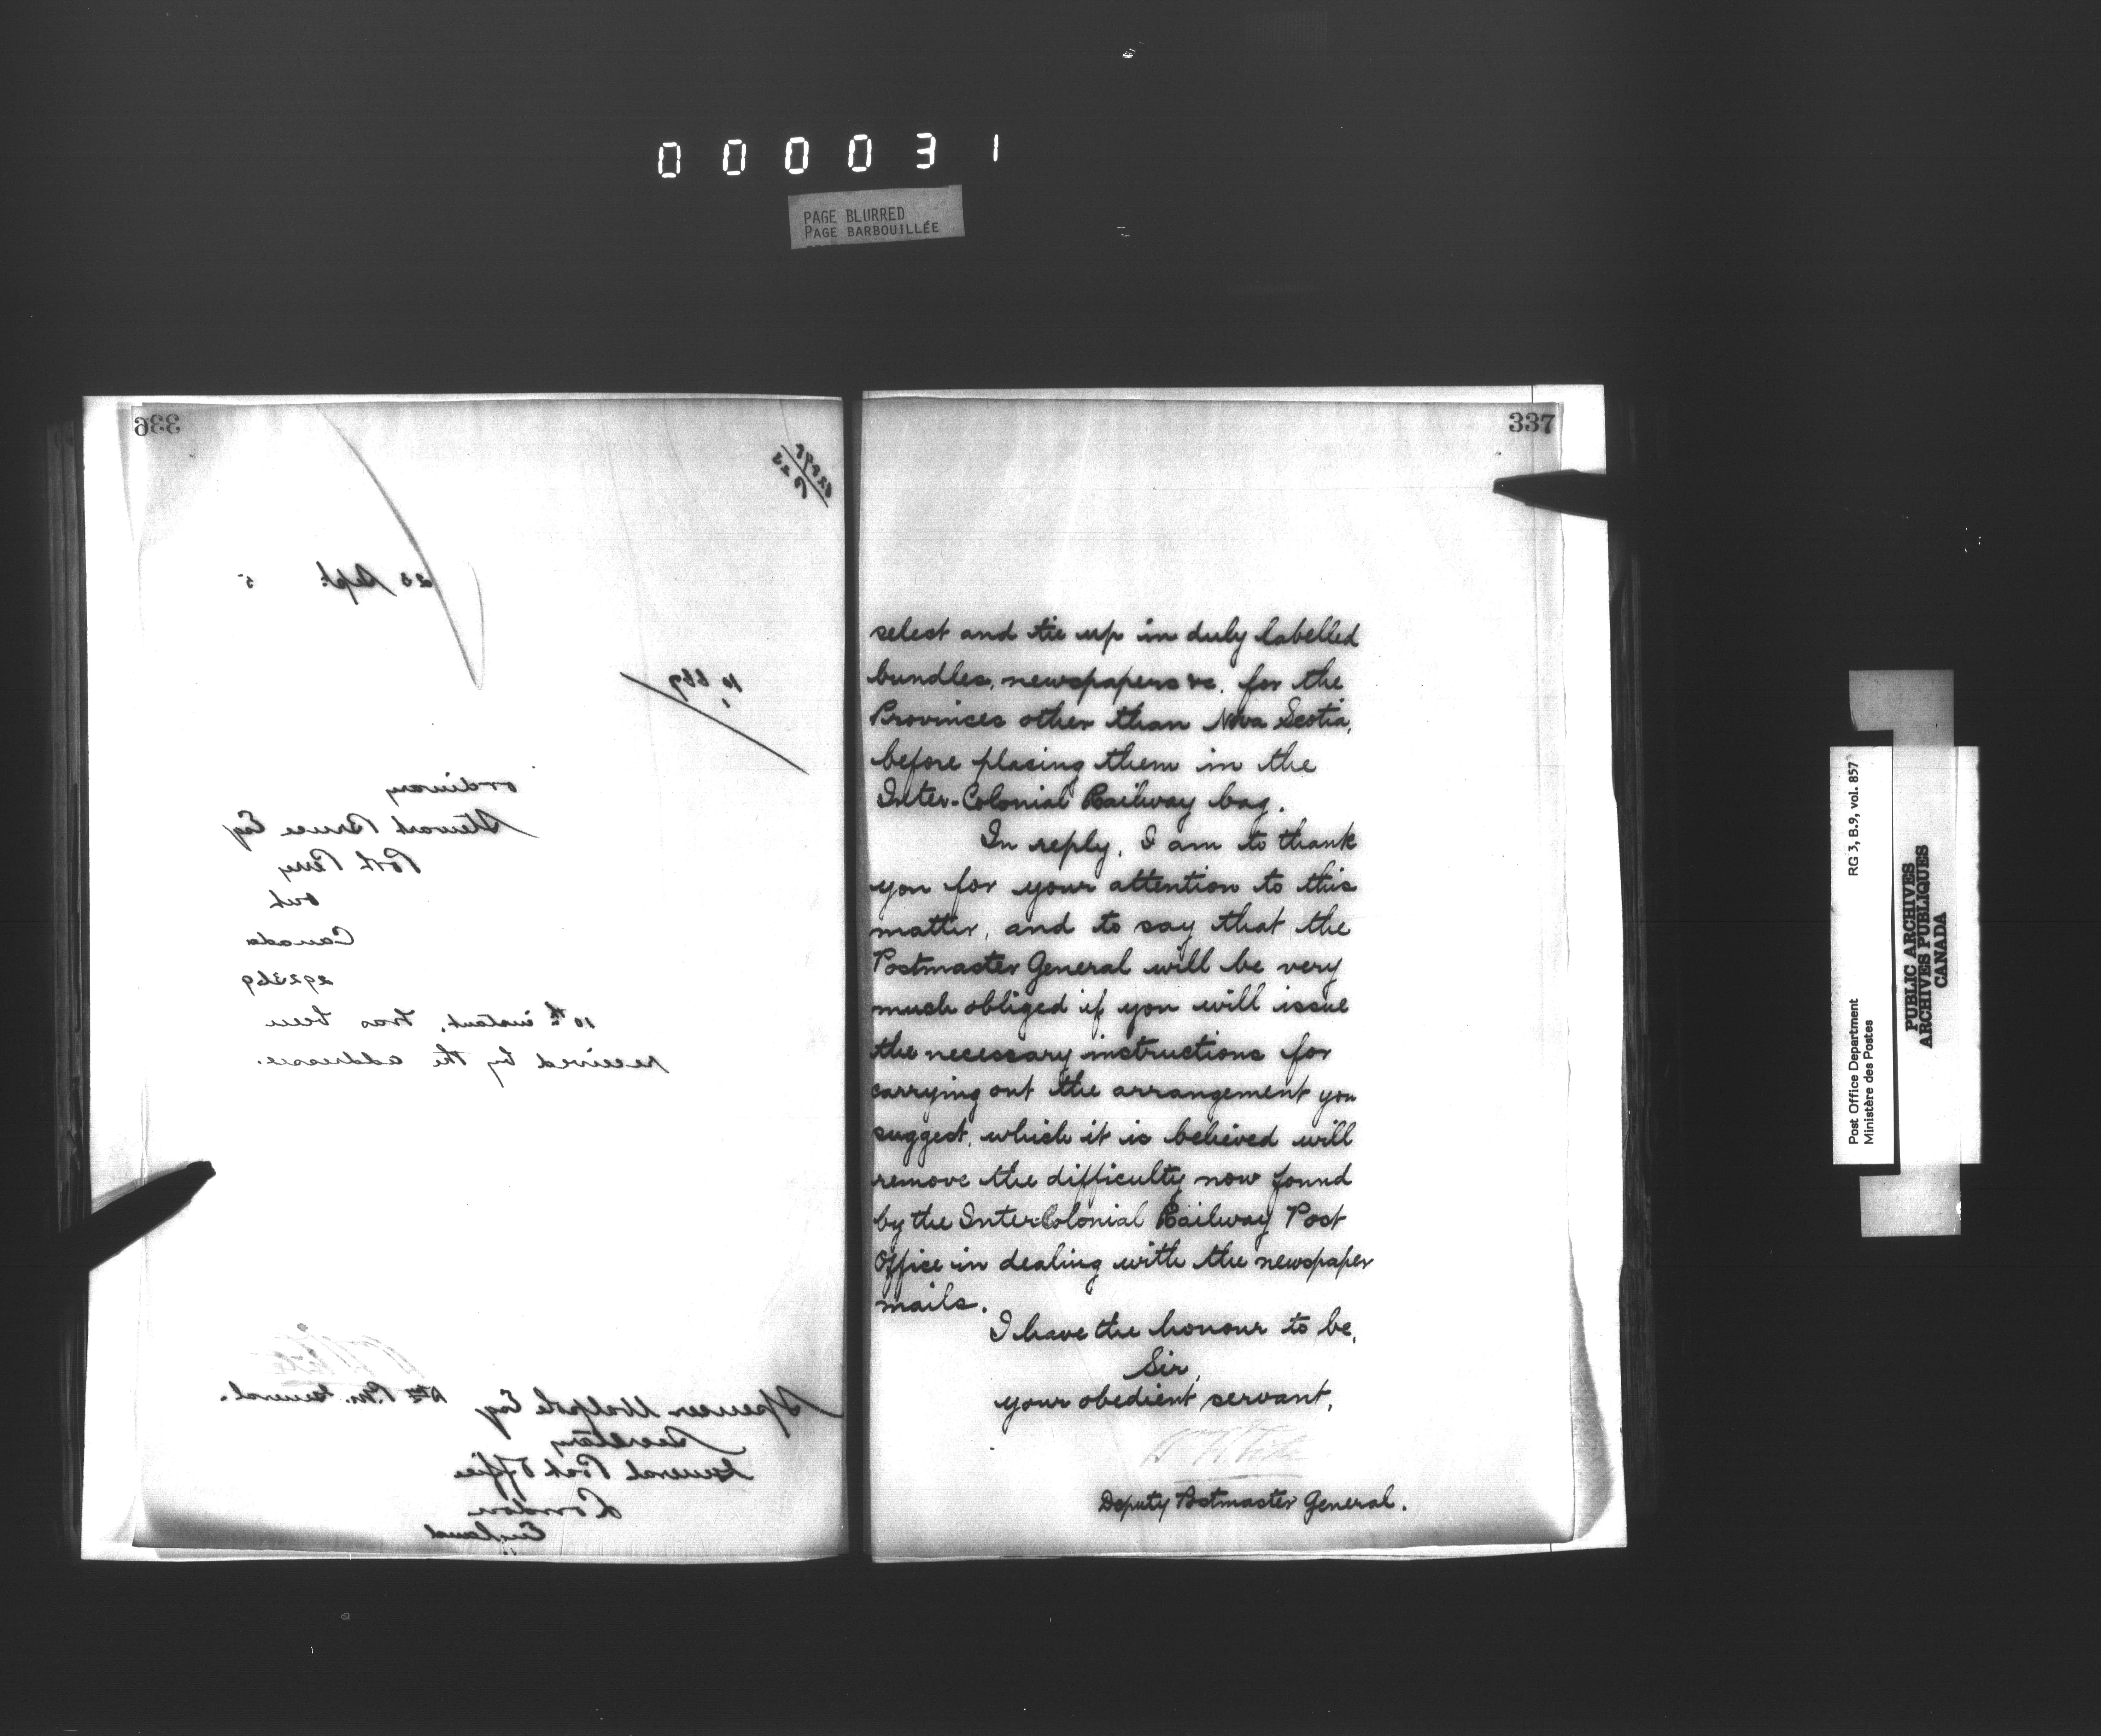 000031
PAGE BLURRED
PAGE BARBOUILLÉE
336
23 Sept. 5
10,669
ordinary
Stewart Bruce Esq
Port Perry
Ont
Canada
292369
10th instant, has been
received by the addressee.
Dty P.M. General.
Spencer Walpole Esq
Secretary
General Post Office
London
England
337
select and tie up in duly labelled
bundles, newspapers &c. for the
Provinces other than Nova Scotia,
before placing them in the
Inter-Colonial Railway bag.
In reply, I am to thank
you for your attention to this
matter, and to say that the
Postmaster General will be very
much obliged if you will issue
the necessary instructions for
carrying out the arrangement you
suggest, which it is believed will
remove the difficulty now found
by the Inter-Colonial Railway Post
Office in dealing with the newspaper
mails.
I have the honour to be,
Sir,
your obedient servant,
W H White
Deputy Postmaster General.
Post Office Department
Ministère des Postes
RG 3, B.9, vol. 857
PUBLIC ARCHIVES
ARCHIVES PUBLIQUES
CANADA